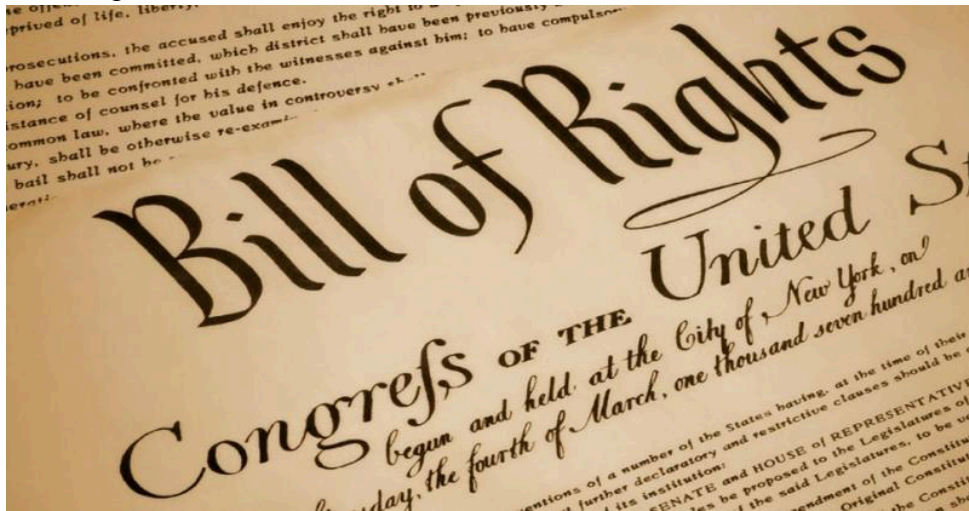 prived of life, liberty,
rosecutions, the accused shall enjoy the right to a
have been committed, which district shall have been previously
ion; to be confronted with the witnesses against him; to have compulsor
istance of counsel for his defence.
ommon law, where the value in controversy shall
ury, shall be otherwise re-exami
bail shall not be
Bill of Rights
Congreſs OF THE United St
begun and held at the City of New York, on
sday, the fourth of March, one thousand seven hundred a
entions of a number of the States having, at the time of their
t further declaratory and restrictive clauses should be
d its institution:
SENATE and HOUSE of REPRESENTATIVE
les be proposed to the Legislatures of
f the said Legislatures, to be
endment of the Constitu
Original Constitu
the Consti